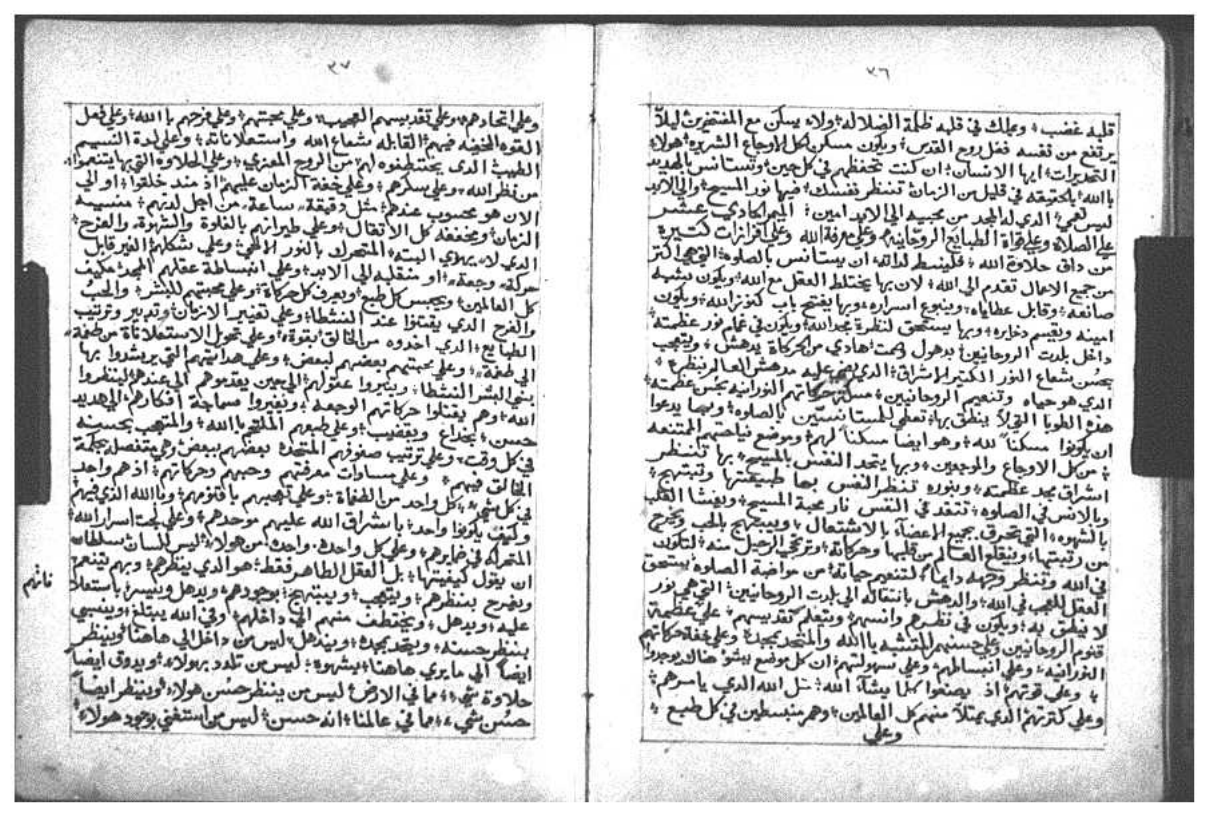 ٣٦
قلبه غضب؛ ويملك في قلبه ظلمة الضلاله؛ ولا يسكن مع المفتخرين؛ ليلا
يرتفع من نفسه فعل روح القدس؛ ويكون مسكن لكل الاوجاع الشريره؛ هولاء
التحديرات؛ ايها الانسان؛ ان كنت تحفظهم في كل حين؛ وتستانس بالهديد
باالله؛ بالحقيقه في قليل من الزمان؛ تنظر نفسك؛ فيها نور المسيح؛ والى الابد
ليس تعمي؛ الدي له المجد من محبيه الى الابد امين؛ الميمر الحادي عشر
على الصلاه وعلى قواة الطبايع الروحانيه وعلى معرفة الله وعلى افرازات كتيره
من داق حلاوة الله؛ فلينبسط لداته؛ ان يستانس بالصلوه؛ التي هي اكتر
من جميع الاعمال تقدم الى الله؛ لان بها يختلط العقل مع الله؛ ويكون بشبه
صانعه؛ وقابل عطاياه؛ وينبوع اسراره؛ وبها يفتح باب كنوز الله؛ ويكون
امينه ويقسم دخايره؛ وبها يستحق لنظرة مجد الله؛ ويكون في غمام نور عظمته؛
داخل بلدت الروحانيين؛ بدهول وصمت؛ هادي من الحركاة يدهش؛ ويتعجب
بحسن شعاع النور الكتير الاشراق؛ الدي يضي عليه مدهش العالم بنظره؛
الدي هو حياه وتنعيم الروحانيين؛ حركاتهم النورانيه بحسن عظمته؛
هده الطوبا التي لا ينطق بها؛ تعطي للمستانسين بالصلوه؛ وبها يدعوا
ان يكونوا مسكنا لله؛ وهو ايضا مسكنا لهم؛ وموضع نياحتهم الممتنعه
من كل الاوجاع والموجعين؛ وبها يتحد النفس بالمسيح؛ بها تنظر
اشراق مجد عظمته؛ وبنوره تنظر النفس بها طبيعتها وتبتهج؛
وبالانس في الصلوه؛ تتقد في النفس نار محبة المسيح؛ ويغشا القلب
بالشهوه؛ التي تحرق جميع الاعضاء بالاشتعال؛ ويبتهج بالحب ويخرج
من رتبتها؛ وينقلع العالم من قلبها وحركاته؛ وترتجي الرحيل منه؛ لتكون
في الله وتنظر وجهه دايما؛ لتنعيم حياته؛ من مواضبة الصلوه يستحق
العقل للعجب في الله؛ والدهش بانتقاله الى بلدت الروحانيين؛ التي هي نور
لا ينطق به؛ ويكون في نظرهم وانسهم؛ ويتعلم تقديسهم؛ على عظمة
قنوم الروحانيين وعلى حسنهم المتشبه باالله والمتحد بمجده؛ وعلى خفة حركاتهم
النورانيه؛ وعلى انبساطهم؛ وعلى سهولتهم؛ ان كل موضع هناك يوجدوا
وعلى قوتهم؛ اذ يصنعوا كلما يشاء الله؛ الله الدي يامرهم؛
وعلى كترتهم الدي يمتلا منهم كل العالمين؛ وهم منبسطين في كل طبع؛
وعلى
٣٧
وعلى اتحادهم؛ وعلى تقديسهم العجيب؛ وعلى محبتهم؛ وعلى فرحهم باالله؛ وعلى فعل
القوه الخفيه فيهم؛ القابله شعاع الله واستعلاناته؛ وعلى لدة النسيم
الطيب؛ الدي يختطفوه لهم من الروح المعزي؛ وعلى الحلاوه التي بها يتنعموا؛
من نظر الله؛ وعلى سكرهم؛ وعلى خفة الزمان عليهم؛ اذ مند خلقوا؛ والى
الان هو محسوب عندهم؛ مثل دقيقة ساعة؛ من اجل لديهم؛ منسيه
الزمان؛ ومخففه كل الاتقال؛ وعلى طيرانهم بالغلوة والشهوة؛ والفرح؛
الدي لا يهدي البته؛ المتحرك بالنور الالهي؛ وعلى شكلهم؛ الغير قابل
حركه؛ وجعة؛ او منقلبه الى الابد؛ وعلى انبساطة عقلهم المجد؛ كيف
كل العالمين؛ ويحبس كل طبع؛ ويعرف كل حركاة؛ وعلى محبتهم للبشر؛ والحب
والفرح الدي يقتنوا عند النشطا؛ وعلى تغيير الازمان؛ وتدبير وترتيب
الطبايع؛ الدي اخدوه من الخالق بقوة؛ وعلى تحويل الاستعلاناة من طغمة؛
الى طغمة؛ وعلى محبتهم بعضهم لبعض؛ وعلى هدايتهم التي يرشدوا بها
بني البشر النشطا؛ وينيروا عقولهم؛ الى حين يقدموهم الى عندهم لينظروا
الله؛ وهم يقتلوا حركاتهم الوجعه؛ ويغيروا سماجة افكارهم؛ الى هديد
حسن؛ بخداع وبغضب؛ وعلى طبعهم الملتحم باالله؛ والمتعجب بحسنه
في كل وقت؛ وعلى ترتيب صفوفهم المتحده بعضهم ببعض؛ وهي مفصله بحكمة
الخالق فيهم؛ وعلى مساوات معرفتهم وحبهم وحركاتهم؛ اذ هم واحد
في كل شي؛ كل واحد من الطغماة؛ وعلى تعجبهم باقنومهم؛ وباالله الدي فيهم
وكيف يكونوا واحد؛ باشراق الله عليهم موحدهم؛ وعلى لجة اسرار الله؛
المتحركه في ضمايرهم؛ وعلى كل واحده واحده من هولاء؛ ليس للسان سلطان
ان يقول كيفيتها؛ بل العقل الطاهر فقط؛ هو الدي ينظرهم؛ وبهم يتنعم؛
ويفرح بنظرهم؛ ويتعجب؛ ويبتهج؛ بوجودهم؛ ويدهل ويتيسر؛ باستعلا
عليه؛ ويدهل؛ ويختطف منهم الى داخلهم؛ وفي الله يبتلع؛ وينسبي
بنظر حسنه؛ ويتحد بمجده؛ ويندهل؛ ليس من داخل الى هاهنا؛ وينظر
ايضا الى ما يري هاهنا؛ بشهوه؛ ليس من تلدد بهولاء؛ ويدوق ايضا
حلاوة شي؛ مما في الارض؛ ليس من ينظر حسن هولاء؛ وينظر ايضا
حسن شي؛ مما في عالمنا؛ انه حسن؛ ليس من استغنى بوجود هولاء؛
ناتهم